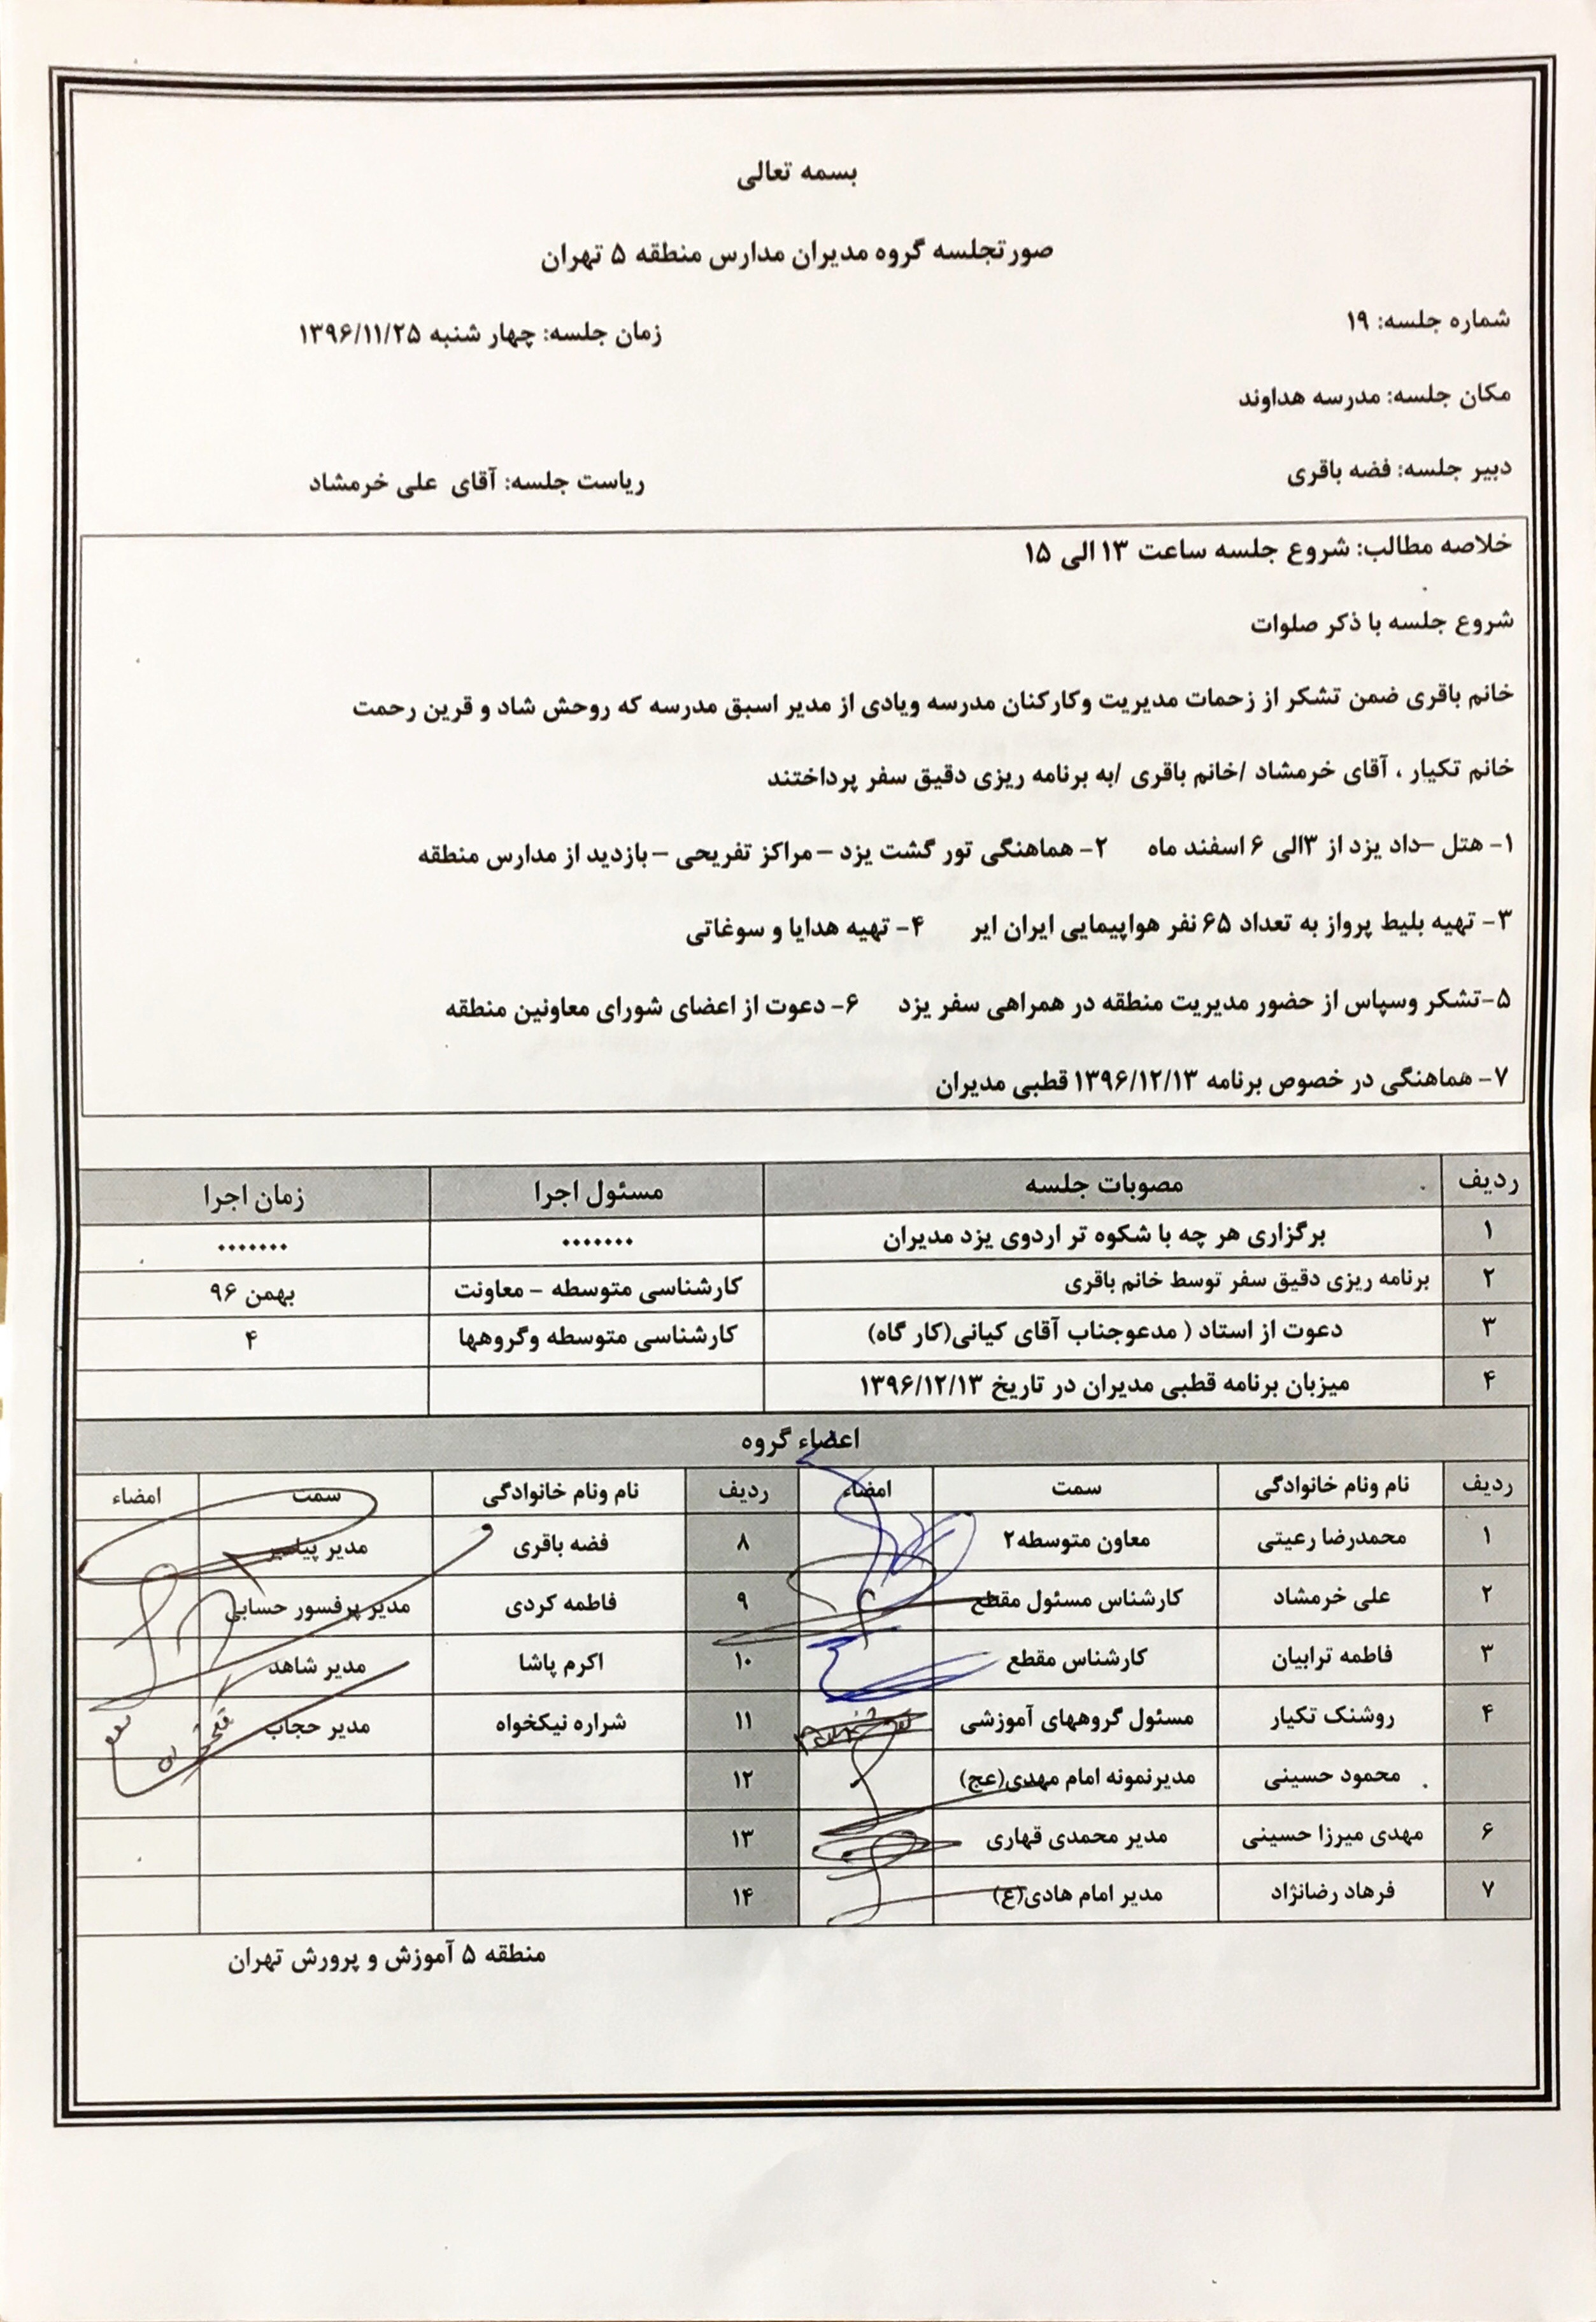 بسمه تعالی
صورتجلسه گروه مدیران مدارس منطقه ۵ تهران
شماره جلسه: ۱۹ زمان جلسه: چهار شنبه ۱۳۹۶/۱۱/۲۵
مکان جلسه: مدرسه هداوند
دبیر جلسه: فضه باقری ریاست جلسه: آقای علی خرمشاد
خلاصه مطالب: شروع جلسه ساعت ۱۳ الی ۱۵
شروع جلسه با ذکر صلوات
خانم باقری ضمن تشکر از زحمات مدیریت وکارکنان مدرسه ویادی از مدیر اسبق مدرسه که روحش شاد و قرین رحمت
خانم تکیار ، آقای خرمشاد /خانم باقری /به برنامه ریزی دقیق سفر پرداختند
۱- هتل –داد یزد از ۳الی ۶ اسفند ماه ۲- هماهنگی تور گشت یزد – مراکز تفریحی – بازدید از مدارس منطقه
۳- تهیه بلیط پرواز به تعداد ۶۵ نفر هواپیمایی ایران ایر ۴- تهیه هدایا و سوغاتی
۵-تشکر وسپاس از حضور مدیریت منطقه در همراهی سفر یزد ۶- دعوت از اعضای شورای معاونین منطقه
۷- هماهنگی در خصوص برنامه ۱۳۹۶/۱۲/۱۳ قطبی مدیران
ردیف مصوبات جلسه مسئول اجرا زمان اجرا
۱ برگزاری هر چه با شکوه تر اردوی یزد مدیران ....... .......
۲ برنامه ریزی دقیق سفر توسط خانم باقری کارشناسی متوسطه – معاونت بهمن ۹۶
۳ دعوت از استاد ( مدعوجناب آقای کیانی(کار گاه) کارشناسی متوسطه وگروهها ۴
۴ میزبان برنامه قطبی مدیران در تاریخ ۱۳۹۶/۱۲/۱۳
اعضاء گروه
ردیف نام ونام خانوادگی سمت امضاء ردیف نام ونام خانوادگی سمت امضاء
۱ محمدرضا رعیتی معاون متوسطه۲ ۸ فضه باقری مدیر پیامبر
۲ علی خرمشاد کارشناس مسئول مقطع ۹ فاطمه کردی مدیر پرفسور حسابی
۳ فاطمه ترابیان کارشناس مقطع ۱۰ اکرم پاشا مدیر شاهد
۴ روشنک تکیار مسئول گروههای آموزشی ۱۱ شراره نیکخواه مدیر حجاب
محمود حسینی مدیرنمونه امام مهدی(عج) ۱۲
۶ مهدی میرزا حسینی مدیر محمدی قهاری ۱۳
۷ فرهاد رضانژاد مدیر امام هادی(ع) ۱۴
منطقه ۵ آموزش و پرورش تهران